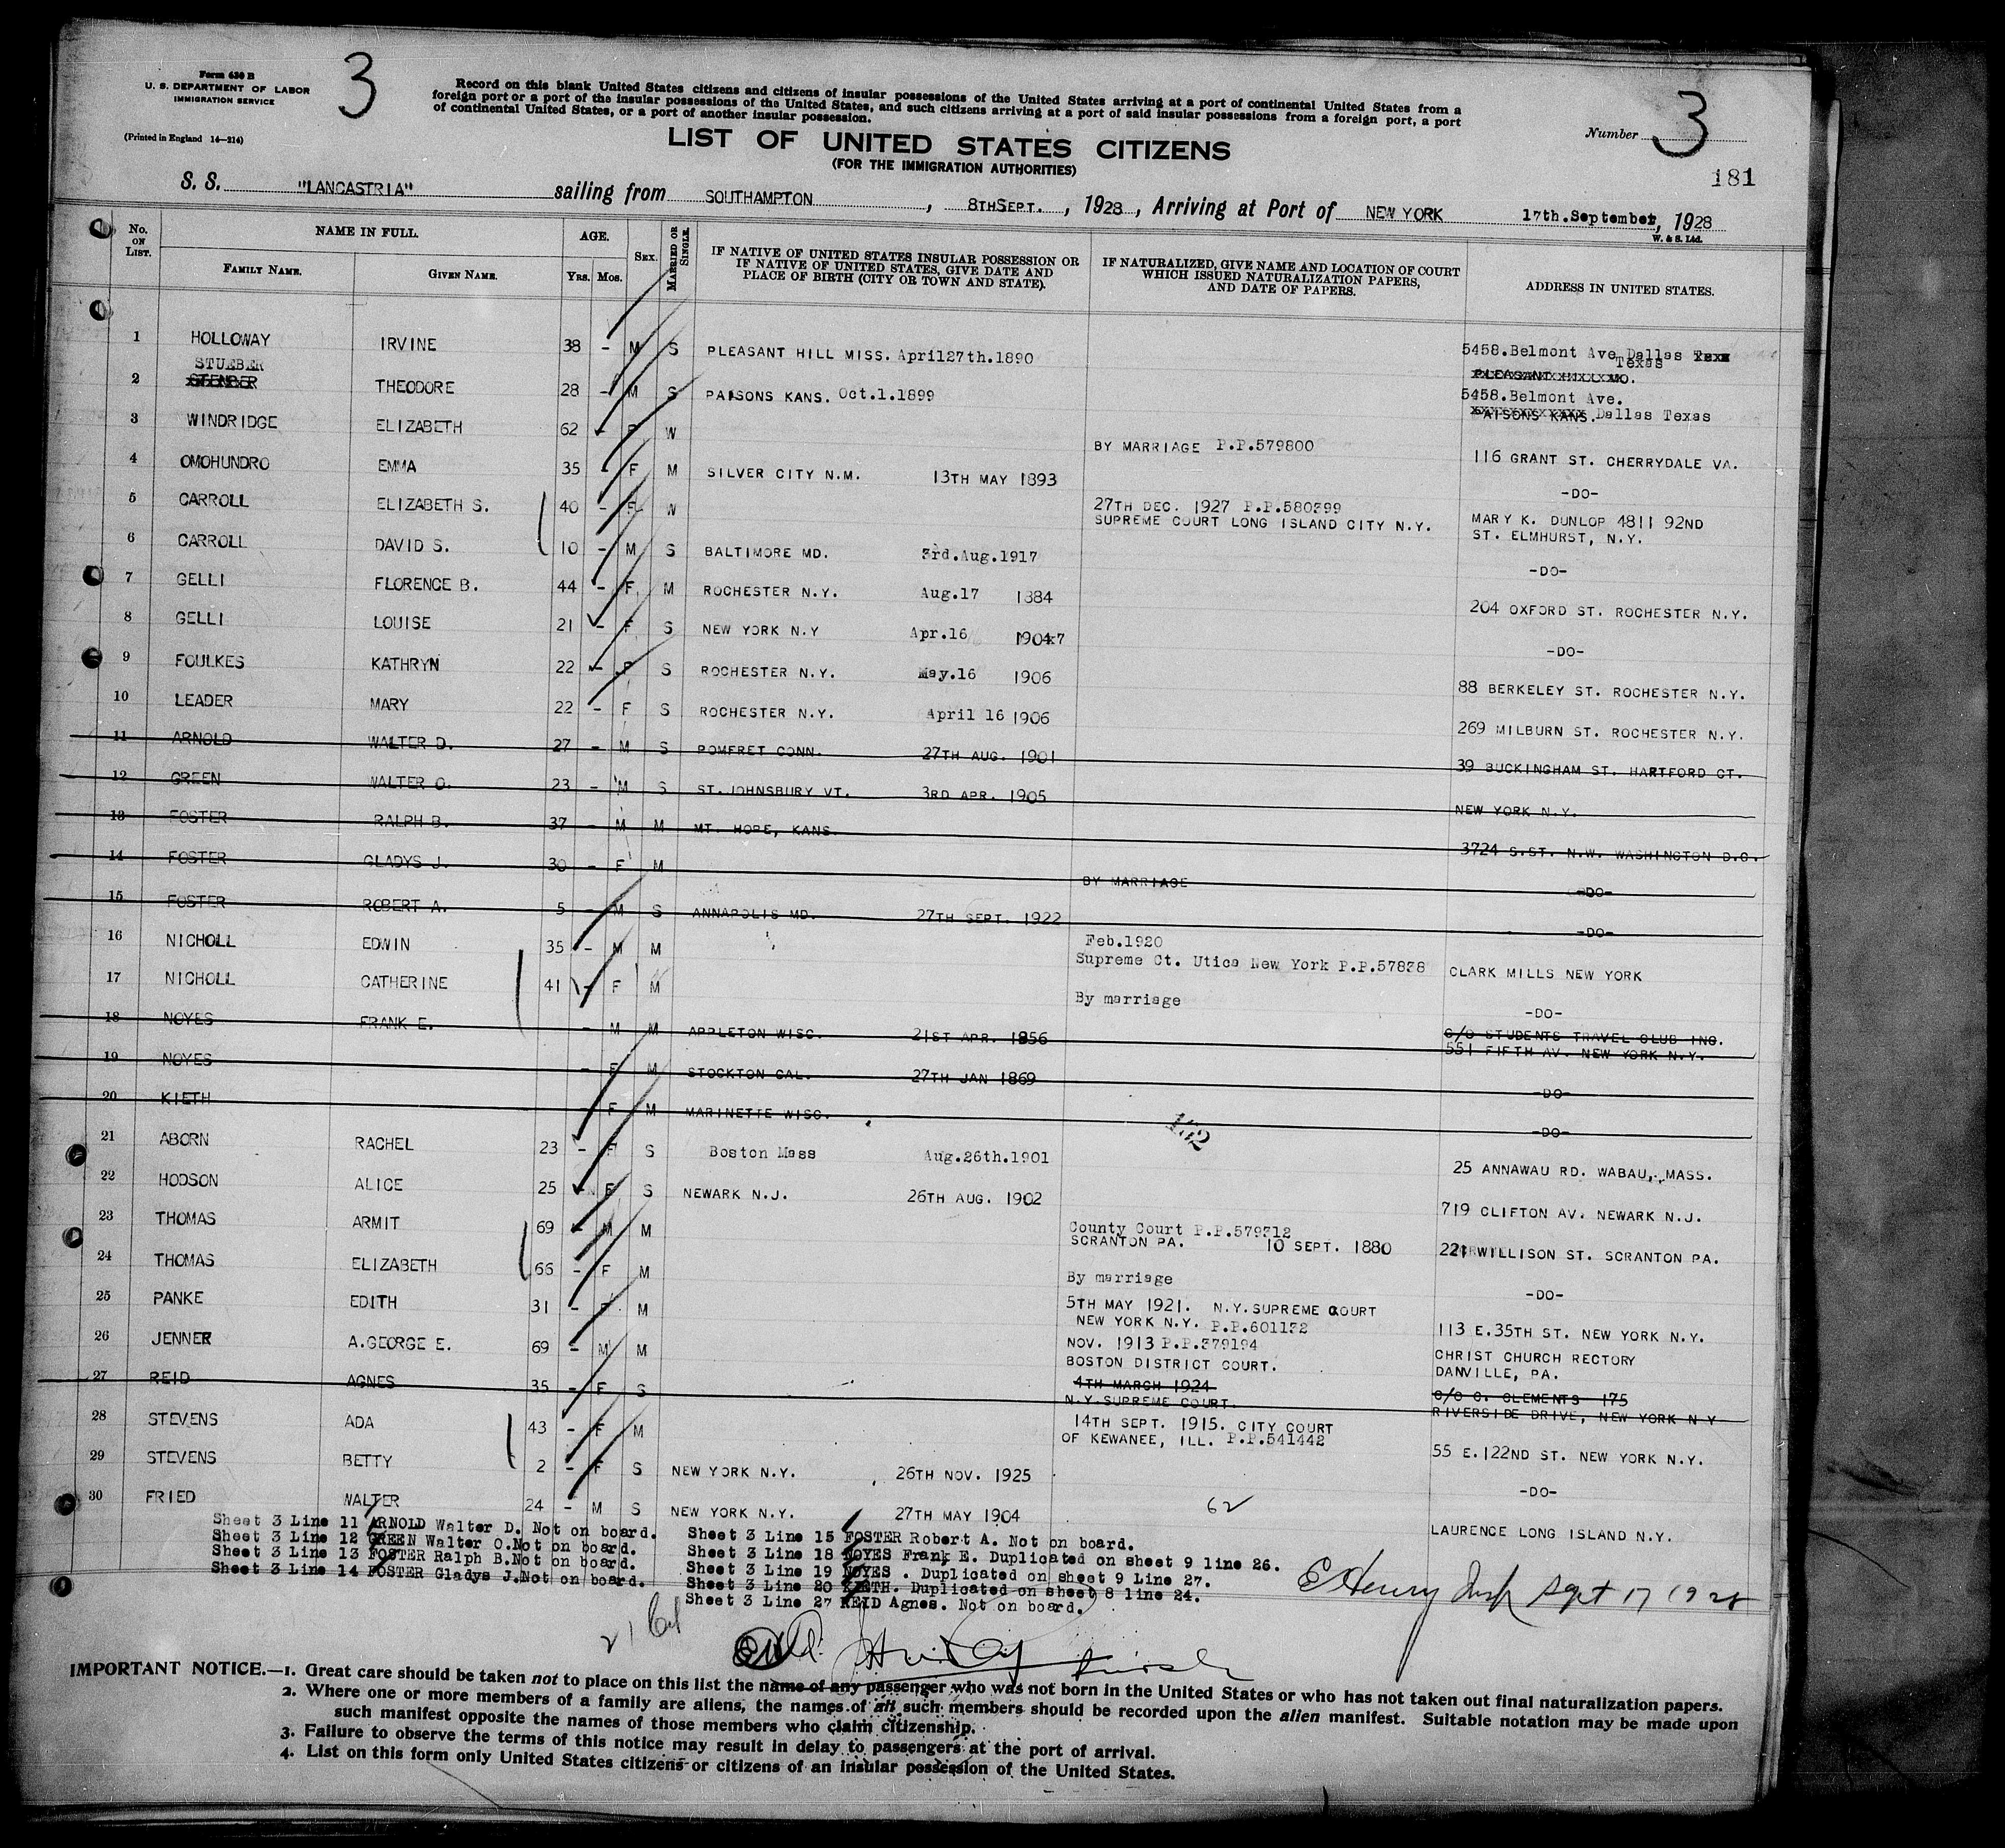 Form 630 B
U. S. DEPARTMENT OF LABOR
IMMIGRATION SERVICE
(Printed in England 14—214)
3
Record on this blank United States citizens and citizens of insular possessions of the United States arriving at a port of continental United States from a
foreign port or a port of the insular possessions of the United States, and such citizens arriving at a port of said insular possessions from a foreign port, a port
of continental United States, or a port of another insular possession.
LIST OF UNITED STATES CITIZENS
(FOR THE IMMIGRATION AUTHORITIES)
Number 3
181
S. S. "LANCASTRIA" sailing from SOUTHAMPTON, 8TH SEPT., 1928, Arriving at Port of NEW YORK 17th.September, 1928
W. & S. Ltd.
No. ON LIST. NAME IN FULL. FAMILY NAME. GIVEN NAME. AGE. Yrs. Mos. SEX. MARRIED OR SINGLE. IF NATIVE OF UNITED STATES INSULAR POSSESSION OR IF NATIVE OF UNITED STATES, GIVE DATE AND PLACE OF BIRTH (CITY OR TOWN AND STATE). IF NATURALIZED, GIVE NAME AND LOCATION OF COURT WHICH ISSUED NATURALIZATION PAPERS, AND DATE OF PAPERS. ADDRESS IN UNITED STATES.
1 HOLLOWAY IRVINE 38 - M S PLEASANT HILL MISS. April27th.1890 5458.Belmont Ave Dallas Texas
2 STUEBER THEODORE 28 - M S PAISONS KANS. Oct.1.1899 5458.Belmont Ave. PAISONS KANS. Dallas Texas
3 WINDRIDGE ELIZABETH 62 - F W BY MARRIAGE P.P.579800 116 GRANT ST. CHERRYDALE VA.
4 OMOHUNDRO EMMA 35 - F M SILVER CITY N.M. 13TH MAY 1893 -DO-
5 CARROLL ELIZABETH S. 40 - F W 27TH DEC. 1927 P.P.580399 SUPREME COURT LONG ISLAND CITY N.Y. MARY K. DUNLOP 4811 92ND ST. ELMHURST, N.Y.
6 CARROLL DAVID S. 10 - M S BALTIMORE MD. 3rd.Aug.1917 -DO-
7 GELLI FLORENCE B. 44 - F M ROCHESTER N.Y. Aug.17 1884 204 OXFORD ST. ROCHESTER N.Y.
8 GELLI LOUISE 21 - F S NEW YORK N.Y Apr.16 1907 -DO-
9 FOULKES KATHRYN 22 - F S ROCHESTER N.Y. May.16 1906 88 BERKELEY ST. ROCHESTER N.Y.
10 LEADER MARY 22 - F S ROCHESTER N.Y. April 16 1906 269 MILBURN ST. ROCHESTER N.Y.
11 ARNOLD WALTER D. 27 - M S POMFRET CONN. 27TH AUG. 1901 39 BUCKINGHAM ST. HARTFORD CT.
12 GREEN WALTER O. 23 - M S ST.JOHNSBURY VT. 3RD APR. 1905 NEW YORK N.Y.
13 FOSTER RALPH B. 37 - M M MT. HOPE, KANS. 3724 S.ST. N.W. WASHINGTON D.C.
14 FOSTER GLADYS J. 30 - F M BY MARRIAGE -DO-
15 FOSTER ROBERT A. 5 - M S ANNAPOLIS MD. 27TH SEPT. 1922 -DO-
16 NICHOLL EDWIN 35 - M M Feb.1920 Supreme Ct. Utica New York P.P.57838 CLARK MILLS NEW YORK
17 NICHOLL CATHERINE 41 - F M By marriage -DO-
18 NOYES FRANK E. - M M APPLETON WISC. 21ST APR. 1856 C/O STUDENTS TRAVEL CLUB INC. 551 FIFTH AV. NEW YORK N.Y.
19 NOYES - F M STOCKTON CAL. 27TH JAN 1869 -DO-
20 KIETH - F M MARINETTE WISC. -DO-
21 ABORN RACHEL 23 - F S Boston Mass Aug.26th.1901 25 ANNAWAU RD. WABAU, MASS.
22 HODSON ALICE 25 - F S NEWARK N.J. 26TH AUG. 1902 719 CLIFTON AV. NEWARK N.J.
23 THOMAS ARMIT 69 - M M County Court P.P.579312 SCRANTON PA. 10 SEPT. 1880 221 WILLISON ST. SCRANTON PA.
24 THOMAS ELIZABETH 66 - F M By marriage -DO-
25 PANKE EDITH 31 - F M 5TH MAY 1921. N.Y.SUPREME COURT NEW YORK N.Y. P.P.601132 113 E.35TH ST. NEW YORK N.Y.
26 JENNER A.GEORGE E. 69 - M M NOV. 1913 P.P.379194 BOSTON DISTRICT COURT. CHRIST CHURCH RECTORY DANVILLE, PA.
27 REID AGNES 35 - F S 4TH MARCH 1924 N.Y.SUPREME COURT. C/O C. CLEMENTS 175 RIVERSIDE DRIVE, NEW YORK N Y
28 STEVENS ADA 43 - F M 14TH SEPT. 1915. CITY COURT OF KEWANEE, ILL. P.P.541442 55 E.122ND ST. NEW YORK N.Y.
29 STEVENS BETTY 2 - F S NEW YORK N.Y. 26TH NOV. 1925 -DO-
30 FRIED WALTER 24 - M S NEW YORK N.Y. 27TH MAY 1904 62 LAURENCE LONG ISLAND N.Y.
Sheet 3 Line 11 ARNOLD Walter D. Not on board.
Sheet 3 Line 12 GREEN Walter O.Not on board.
Sheet 3 Line 13 FOSTER Ralph B.Not on board.
Sheet 3 Line 14 FOSTER Gladys J.Not on board.
Sheet 3 Line 15 FOSTER Robert A. Not on board.
Sheet 3 Line 18 NOYES Frank E. Duplicated on sheet 9 line 26.
Sheet 3 Line 19 NOYES . Duplicated on sheet 9 Line 27.
Sheet 3 Line 20 KIETH. Duplicated on sheet 8 line 24.
Sheet 3 Line 27 REID Agnes. Not on board.
E Henry Insp Sept 17 1928
IMPORTANT NOTICE.—1. Great care should be taken not to place on this list the name of any passenger who was not born in the United States or who has not taken out final naturalization papers.
2. Where one or more members of a family are aliens, the names of all such members should be recorded upon the alien manifest. Suitable notation may be made upon
such manifest opposite the names of those members who claim citizenship.
3. Failure to observe the terms of this notice may result in delay to passengers at the port of arrival.
4. List on this form only United States citizens or citizens of an insular possession of the United States.